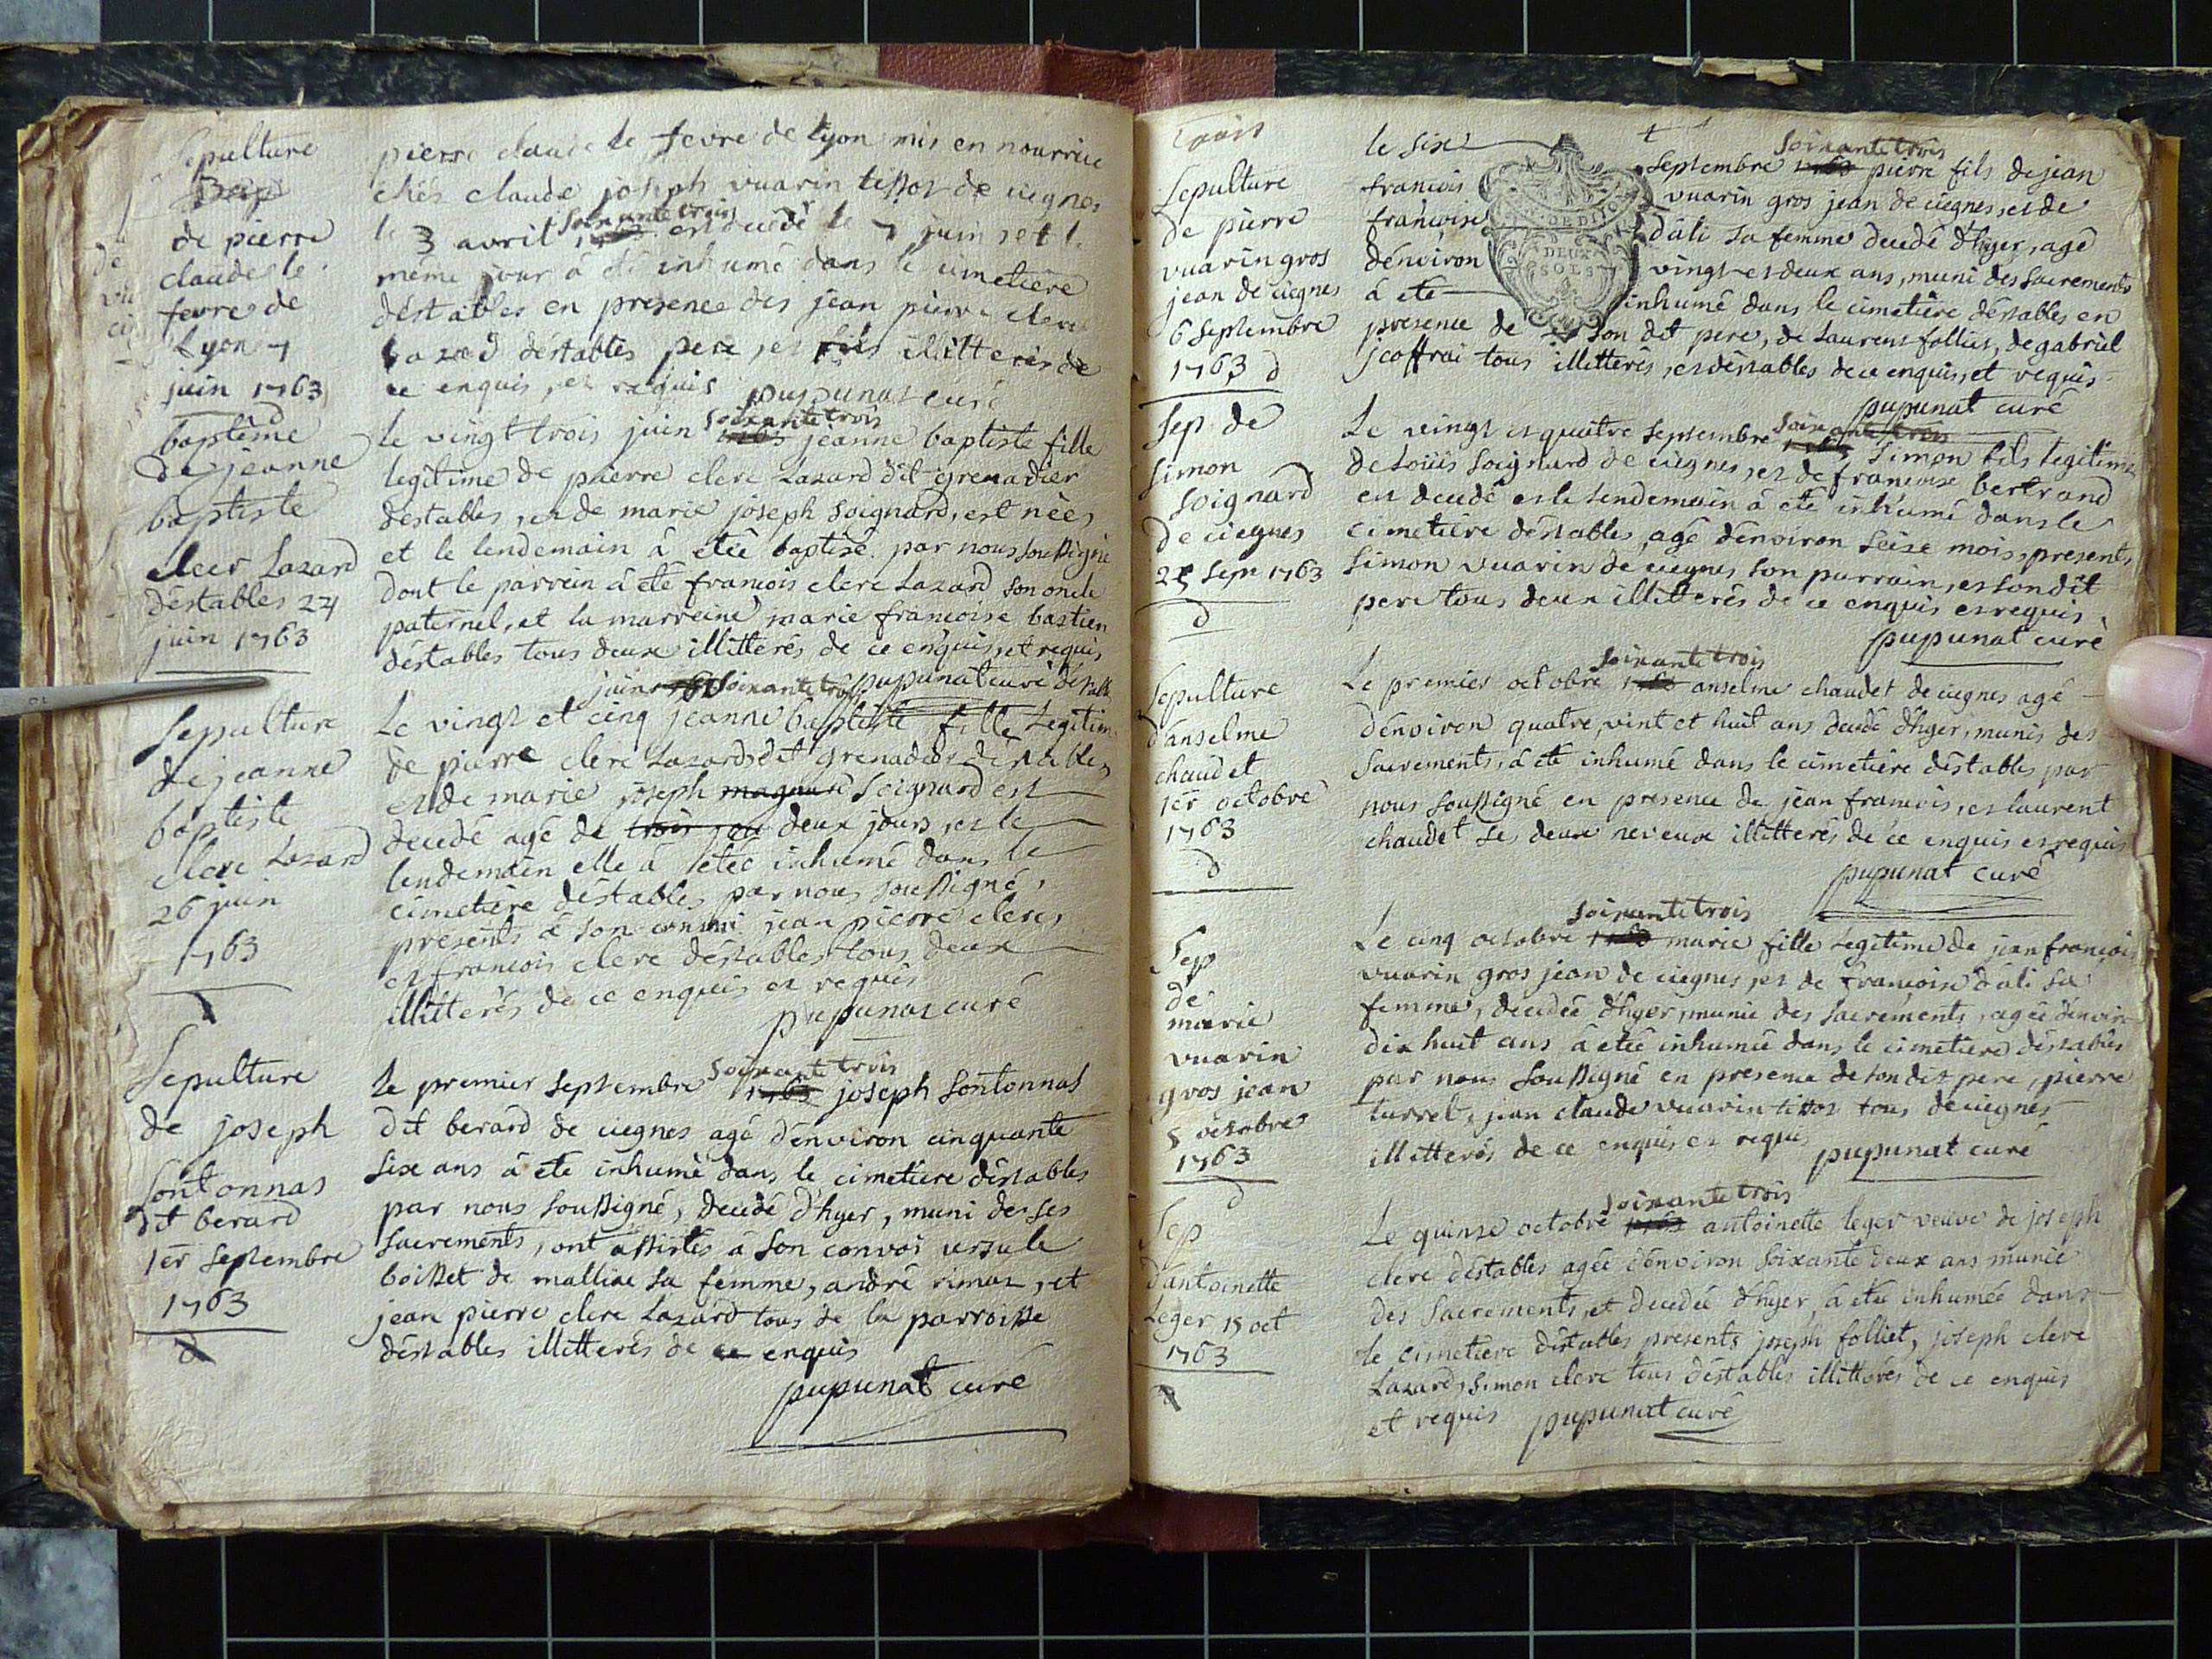 Sepulture
Bap
de pierre
claude le
fevre de
Lyon 7
juin 1763
pierre claude le fevre de Lyon mis en nourrice
chés claude joseph vuarin tissot de ciegnes
le 3 avril soixante trois est decedé le 7 juin et le
même jour à été inhumé dans le cimetiere
déstables en presence des jean pierre clerc
Lazard déstables pere, et fils illitterés de
ce enquis, et requis pupunat curé
baptême
de jeanne
baptiste
clerc Lazard
déstables 24
juin 1763
Le vingt trois juin soixante trois jeanne baptiste fille
legitime de pierre clerc Lazard dit grenadier
déstables, et de marie joseph Soignard, est neé,
et le lendemain à eteé baptisé par nous soussigné
dont le parrein à été francois clerc Lazard son oncle
paternel, et la marreine marie francoise bastien
déstables tous deux illitterés de ce enquis, et requis
pupunat curé déstables
Sepulture
de jeanne
baptiste
clerc Lazard
26 juin
1763
juin soixante trois
Le vingt et cinq jeanne baptiste fille Legitime
de pierre clerc Lazard dit grenadier déstables
et de marie joseph Soignard est
decedé agé de trois deux jours, et le
lendemain elle à eteé inhumé dans le
cimetiere déstables par nous soussigné,
presents à son convoi jean pierre clerc,
et francois clerc déstables tous deux
illitterés de ce enquis et requis
pupunat curé
Sepulture
de joseph
Sontonnas
dit berard
1er Septembre
1763
Le premier Septembre soixante trois 1763 joseph Sontonnas
dit berard de ciegnes agé d'environ cinquante
six ans à eté inhumé dans le cimetiere déstables
par nous soussigné, decedé d'hyer, muni des ses
sacrements, ont assistés à son convoi ursule
boisset de malliat sa femme, andré rimaz, et
jean pierre clerc Lazard tous de la parroisse
déstables illitterés de ce enquis
pupunat curé
Sepulture
de pierre
vuarin gros
jean de ciegnes
6 Septembre
1763
le six Septembre soixante trois pierre fils de jean
francois vuarin gros jean de ciegnes, et de
francoise dâli sa femme decedé d'hyer, agé
d'environ vingt et deux ans, muni des sacrements
à eté inhumé dans le cimetiere déstables en
presence de son dit pere, de Laurens folliet, de gabriel
jcoffrai tous illitterés, et déstables de ce enquis, et requis
pupunat curé
DE DIJON
DEUX
SOLS
Sep de
Simon
Soignard
de ciegnes
25 Sepr 1763
Le vingt et quatre Septembre soixante trois Simon fils legitime
de Loüis Soignard de ciegnes, et de francoise bertrand
est decedé et le lendemain à eté inhumé dans le
cimetiere déstables, agé d'environ seize mois, presents,
Simon vuarin de ciegnes son parrain, et son dit
pere tous deux illitterés de ce enquis et requis,
pupunat curé
Sepulture
d'anselme
chaudet
1er octobre
1763
Le premier octobre soixante trois anselme chaudet de ciegnes agé
d'environ quatre, vint et huit ans decedé d'hyer, munis des
Sacrements, à eté inhumé dans le cimetiere déstables par
nous soussigné en presence de jean francois, et laurent
chaudet ses deux neveux illitterés de ce enquis et requis
pupunat curé
Sep
de
marie
vuarin
gros jean
5 octobre
1763
Le cinq octobre soixante trois marie fille Legitime de jean francois
vuarin gros jean de ciegnes, et de francoise dâli sa
femme, decedée d'hyer, munie des sacrements, agée d'environ
dix huit ans à eteé inhumée dans le cimetiere déstables
par nous soussigné en presence de son dit pere, pierre
turrel, jean claude vuarin tissot tous de ciegnes
illitterés de ce enquis, et requis pupunat curé
Sep
d'antoinette
Leger 15 oct
1763
Le quinze octobre soixante trois antoinette leger veuve de joseph
clerc déstables agée d'environ soixante deux ans munie
des Sacrements, et decedée d'hyer, à eteé inhumée dans
le cimetiere déstables presents joseph folliet, joseph clerc
Lazard, Simon clerc tous déstables illitterés de ce enquis
et requis pupunat curé